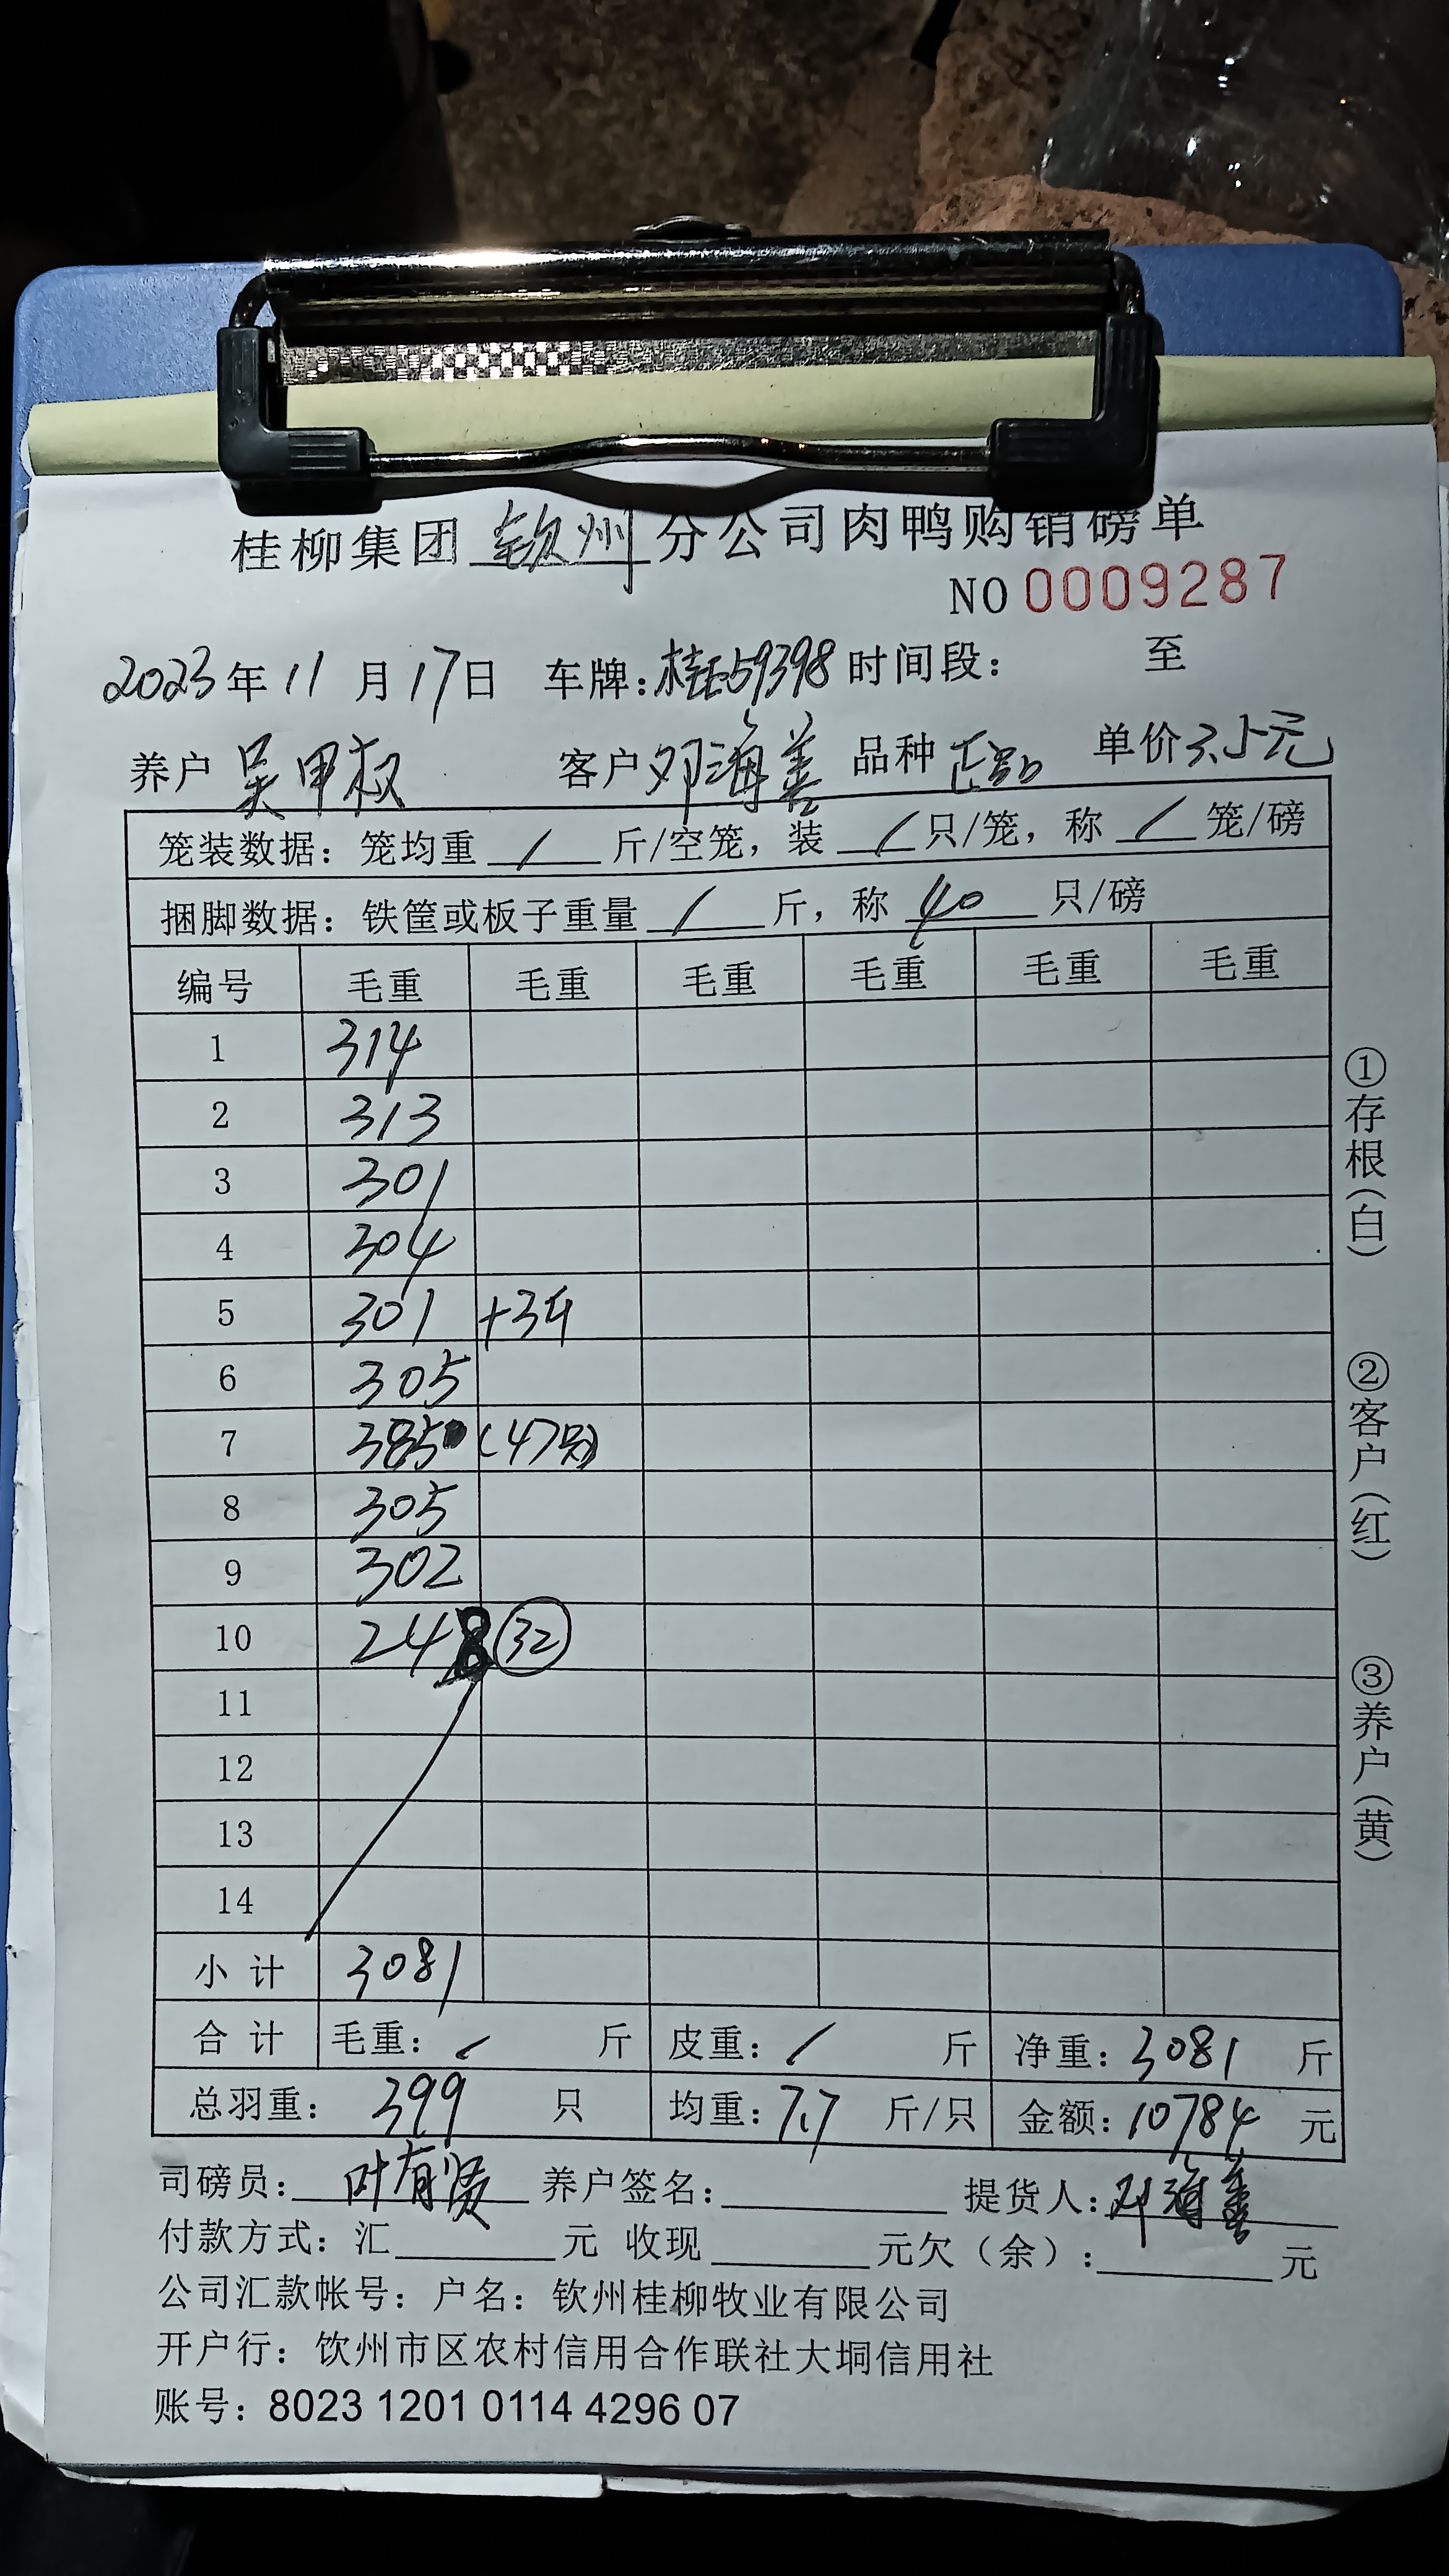 桂柳集团 钦州 分公司肉鸭购销磅单
NO 0009287
2023年11月17日 车牌:桂E59398 时间段: 至
养户 吴甲权 客户 邓海善 品种 正品 单价 3.5元
笼装数据: 笼均重 / 斤/空笼, 装 / 只/笼, 称 / 笼/磅
捆脚数据: 铁筐或板子重量 / 斤, 称 40 只/磅
编号 毛重 毛重 毛重 毛重 毛重 毛重
1 314
2 313
3 301
4 304
5 301 +3斤
6 305
7 385 (47只)
8 305
9 302
10 248 32
11
12
13
14
小计 3081
合计 毛重: / 斤 皮重: / 斤 净重: 3081 斤
总羽重: 399 只 均重: 7.7 斤/只 金额: 10784 元
司磅员: 叶有贤 养户签名: 提货人: 邓海善
付款方式: 汇 元 收现 元欠(余): 元
公司汇款帐号: 户名: 钦州桂柳牧业有限公司
开户行: 饮州市区农村信用合作联社大垌信用社
账号: 8023 1201 0114 4296 07
①存根(白)
②客户(红)
③养户(黄)